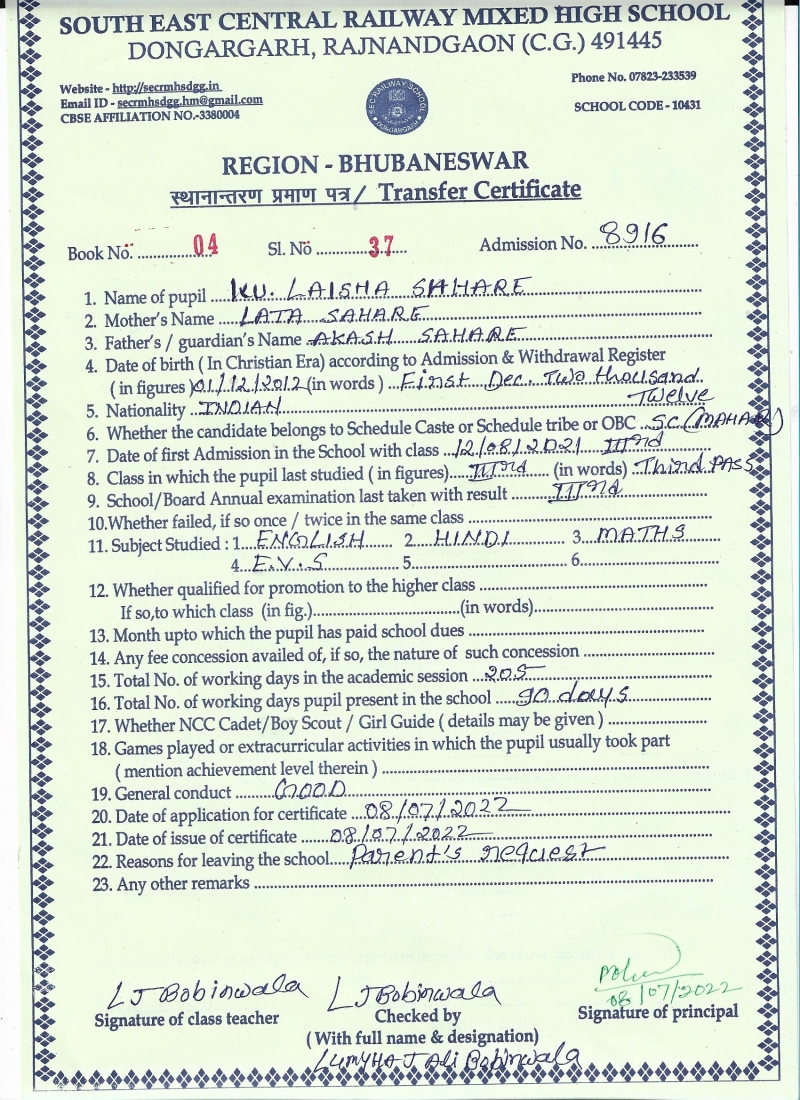 SOUTH EAST CENTRAL RAILWAY MIXED HIGH SCHOOL
DONGARGARH, RAJNANDGAON (C.G.) 491445
Website - http://secrmhsdgg.in
Phone No. 07823-233539
Email ID - secrmhsdgg.hm@gmail.com
SCHOOL CODE - 10431
CBSE AFFILIATION NO.-3380004
SEC RAILWAY SCHOOL DONGARGARH
REGION - BHUBANESWAR
स्थानान्तरण प्रमाण पत्र / Transfer Certificate
Book No. 04 Sl. No 37 Admission No. 8916
1. Name of pupil KU. LAISHA SAHARE
2. Mother's Name LATA SAHARE
3. Father's / guardian's Name AKASH SAHARE
4. Date of birth ( In Christian Era) according to Admission & Withdrawal Register
( in figures ) 01/12/2012 (in words ) First Dec. Two thousand
Twelve
5. Nationality INDIAN
6. Whether the candidate belongs to Schedule Caste or Schedule tribe or OBC S.C (MAHAR)
7. Date of first Admission in the School with class 12/08/2021 IIIrd
8. Class in which the pupil last studied ( in figures) IIIrd (in words) Third PASS
9. School/Board Annual examination last taken with result IIIrd
10.Whether failed, if so once / twice in the same class
11. Subject Studied : 1 ENGLISH 2 HINDI 3 MATHS
4 E.V.S 5 6
12. Whether qualified for promotion to the higher class
If so,to which class (in fig.) (in words)
13. Month upto which the pupil has paid school dues
14. Any fee concession availed of, if so, the nature of such concession
15. Total No. of working days in the academic session 205
16. Total No. of working days pupil present in the school 90 days
17. Whether NCC Cadet/Boy Scout / Girl Guide ( details may be given )
18. Games played or extracurricular activities in which the pupil usually took part
( mention achievement level therein )
19. General conduct GOOD
20. Date of application for certificate 08/07/2022
21. Date of issue of certificate 08/07/2022
22. Reasons for leaving the school Parent's request
23. Any other remarks
LJ Bobinwala LJ Bobinwala
08/07/2022
Signature of class teacher Checked by Signature of principal
(With full name & designation)
Ali Bobinwala